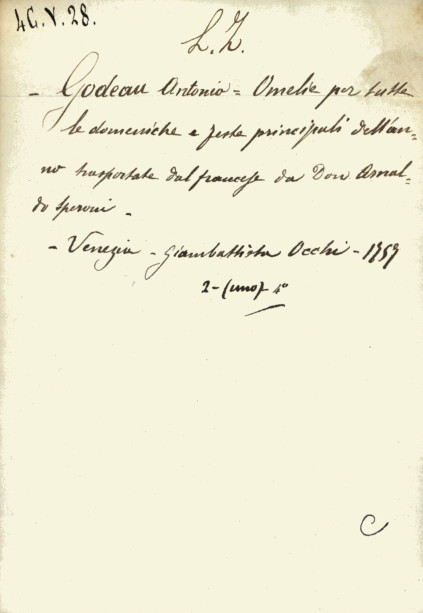 4G.V.28.
L. Z.
- Godeau Antonio = Omelie per tutte
le domeniche e feste principali dell'an=
no trasportate dal francese da Don Arnal=
do Speroni -
- Venezia - Giambattista Occhi - 1757
2 - (uno) 4°
C